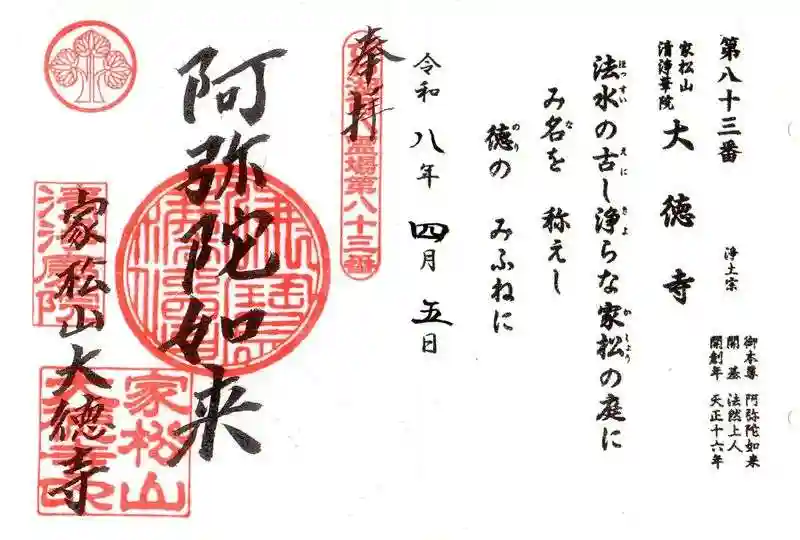 第八十三番
家松山
清浄華院
大徳寺
浄土宗
御本尊 阿弥陀如来
開基 法然上人
開創年 天正十六年
法水の古し浄らな家松の庭に
ほっすい えにし きよ かしょう
み名を 称えし
な
徳の みふねに
のり
令和八年 四月 五日
奉拝
霊場第八十三番
阿弥陀如来
家松山大徳寺
家松山